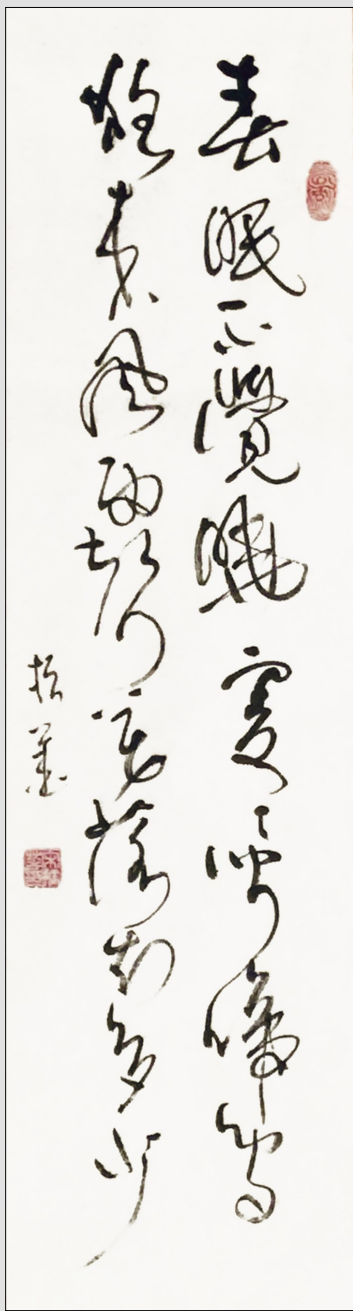 春眠不覺曉處〻聞啼鳥
夜來風雨聲花落知多少